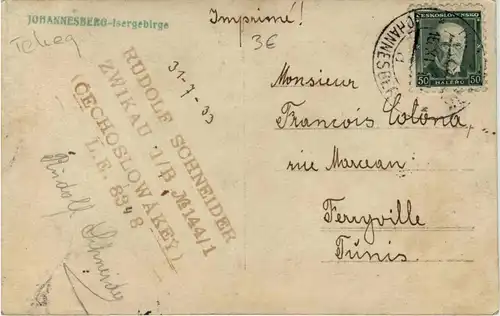 JOHANNESBERG-Isergebirge
Imprimé!
Tcheq
3€
31-7-33
RUDOLF SCHNEIDER
ZWIKAU 1/B № 144/1
(ČECHOSLOWAKEY)
L.E. 8348
Rudolf Schneider
ČESKOSLOVENSKO
50 HALÉŘŮ 50
Monsieur
Francois Colona,
rue Marceau
Ferryville
Tunis.